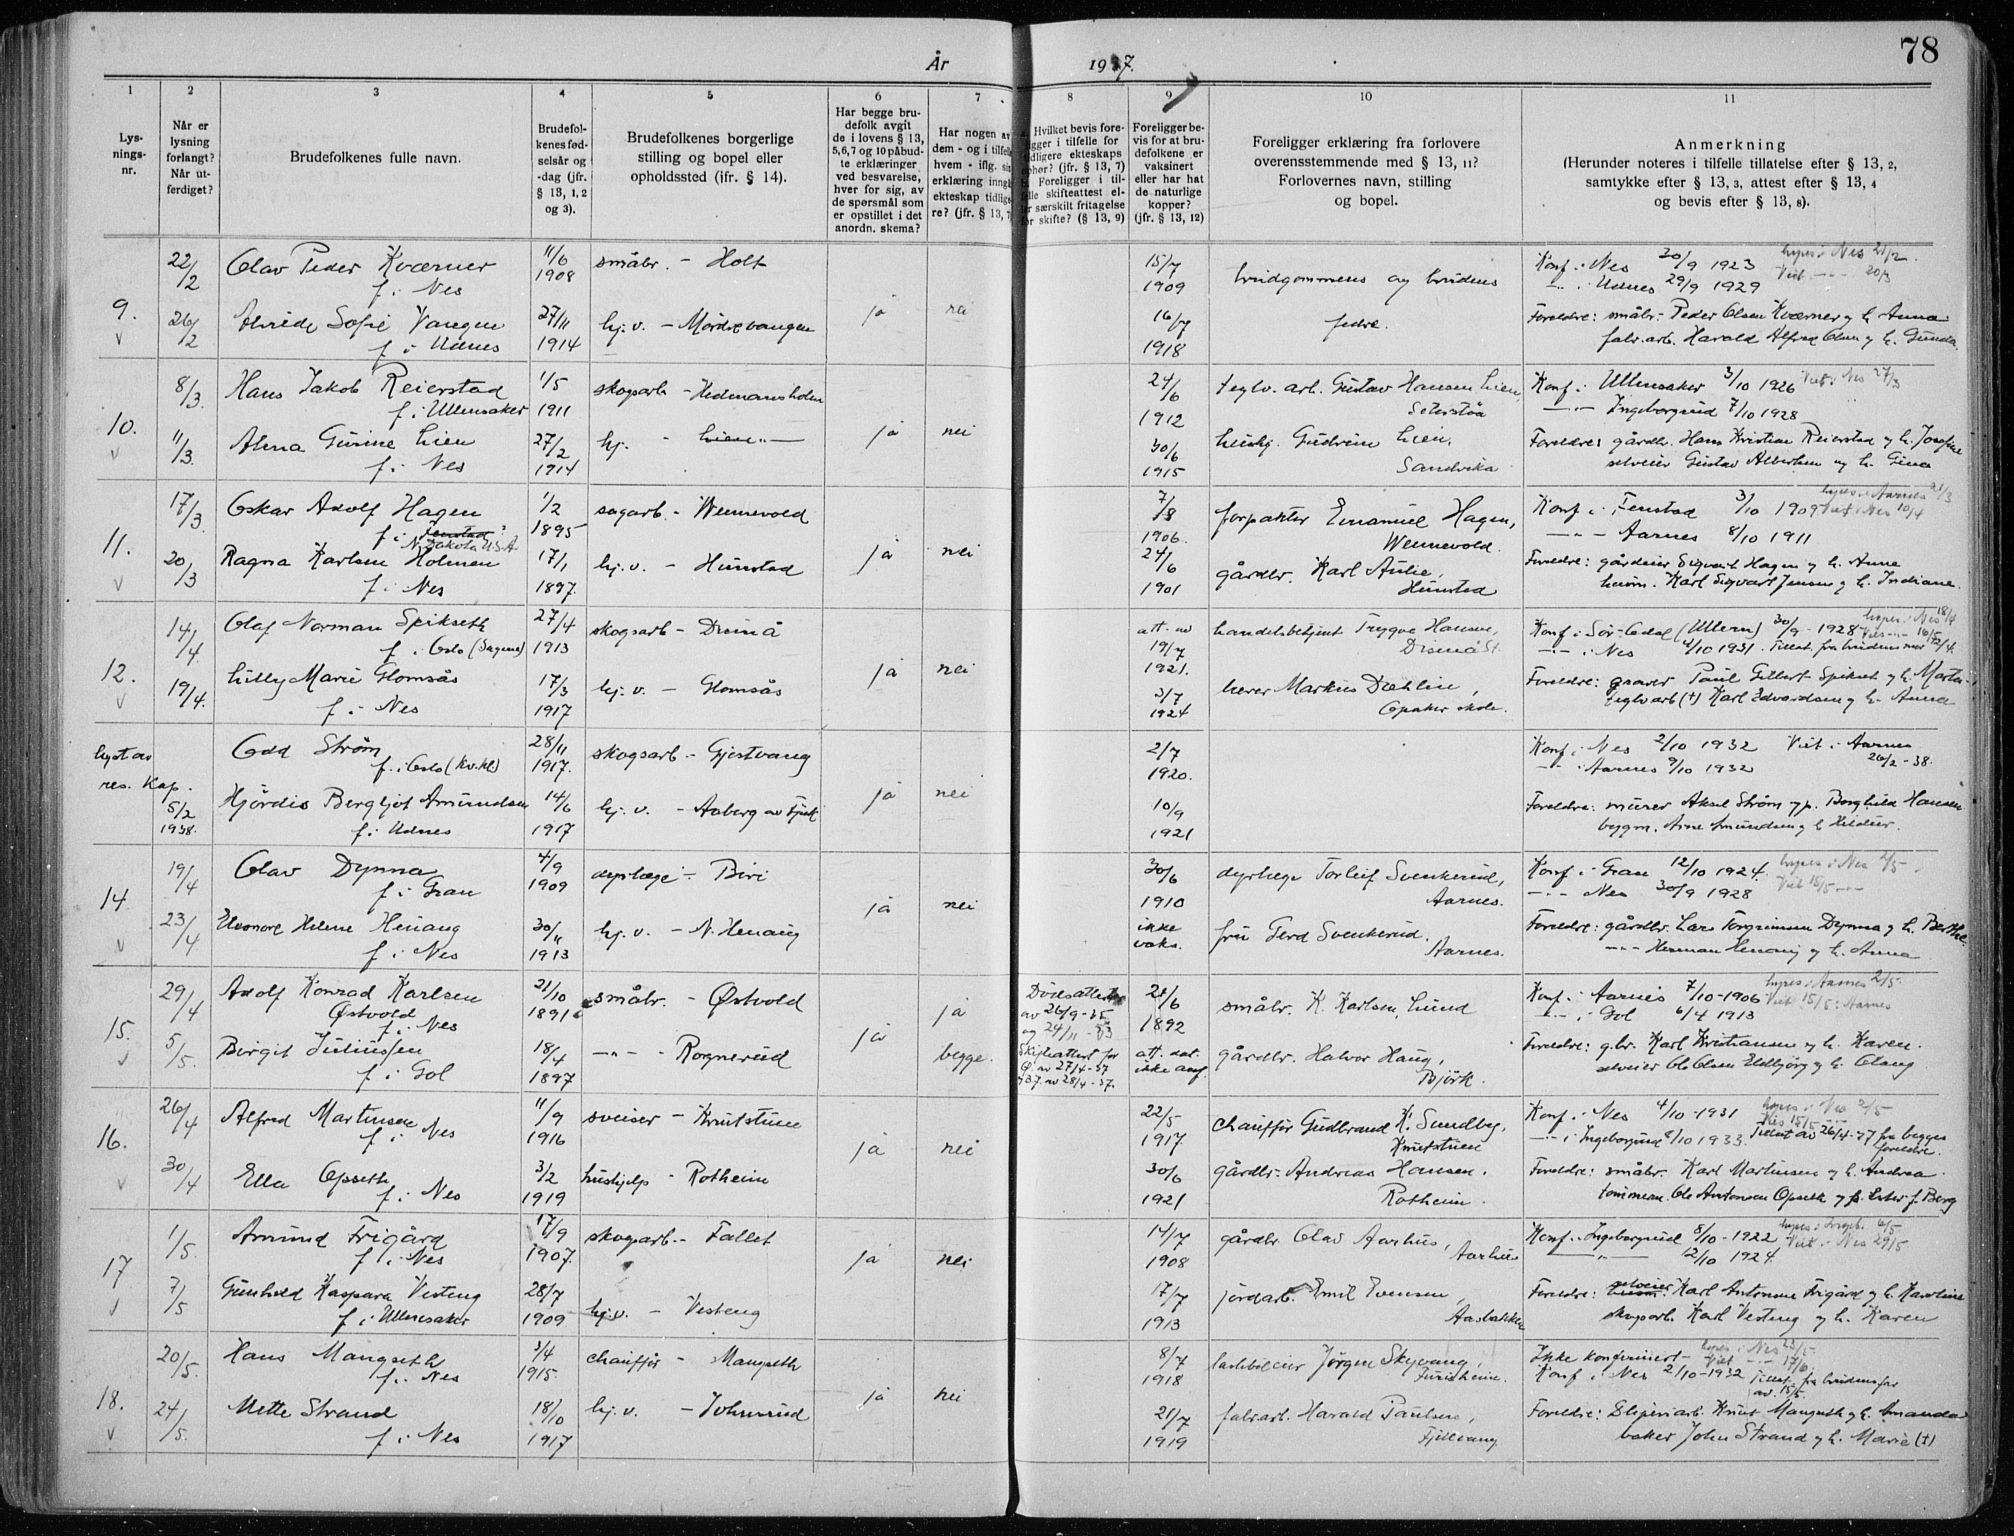 78
År 1937.
1 2 3 4 5 6 7 8 9 10 11
Lys-
nings-
nr.
Når er
lysning
forlangt?
Når ut-
ferdiget?
Brudefolkenes fulle navn.
Brudefol-
kenes fød-
selsår og
-dag (jfr.
§ 13, 1, 2
og 3).
Brudefolkenes borgerlige
stilling og bopel eller
opholdssted (ifr. § 14).
Har begge bru-
defolk avgit
de i lovens § 13,
5,6,7 og 10 påbud-
te erklæringer
ved besvarelse,
hver for sig, av
de spørsmål som
er opstillet i det
anordn. skema?
Har nogen av
dem - og i tilfelle
hvem - iflg. sin
erklæring inngå
ekteskap tidlige
re? (jfr. § 13, 7
a. Hvilket bevis fore-
ligger i tilfelle for
tidligere ekteskaps
ophør? (jfr. § 13, 7)
b. Foreligger i til-
felle skifteattest el-
ler særskilt fritagelse
for skifte? (§ 13, 9)
Foreligger be-
vis for at bru-
defolkene er
vaksinert
eller har hat
de naturlige
kopper?
(jfr. § 13, 12)
Foreligger erklæring fra forlovere
overensstemmende med § 13, 11?
Forlovernes navn, stilling
og bopel.
Anmerkning
(Herunder noteres i tilfelle tillatelse efter § 13, 2,
samtykke efter § 13, 3, attest efter § 13, 4
og bevis efter § 13, 8).
9. 22/2 Olav Peder Kværner 11/6 småbr. - Holt 15/7 brudgommens og brudens Konf. i Nes 30/9 1923 lyses i Nes 21/2
f. i Nes 1908 ja nei 1909 Udnes 29/9 1929 Viet 20/3
26/2 Alvide Sofie Vangen 27/11 hj. v. - Mordrevangen 16/7 fedre. Foreldre: småbr. Peder Olsen Kværner og h. Anna
f. i Udnes 1914 1918 fabr.arb. Harald Alfred Olsen og h. Gunda
10. 8/3. Hans Jakob Reierstad 1/5 skogsarb - Hedmansholen 24/6 teglv. arb. Gustav Hansen Lien Konf. i Ullensaker 3/10 1926 Viet i Nes 27/3
f. i Ullensaker 1911 ja nei 1912 Seterstøa Ingeborgrud 7/10 1928
11/3. Alma Gurine Lien 27/2 hj. - Lien 30/6 hushj. Gudrun Lien, Foreldre: gårdbr. Hans Kristian Reierstad og h. Josefine
f. i Nes 1914 1915 Sandvika selveier Gustav Albertsen og h. Gina
11. 17/3 Oskar Adolf Hagen 1/2 sagarb. - Wennevold 7/8 forpakter Emanuel Hagen, Konf. i Fenstad 3/10 1909 lyses i Aarnes 21/3
f. i Fenstad? N. Dakota U.S.A. 1895 ja nei 1906. Wennevold. Aarnes 8/10 1911 Viet i Nes 10/4
20/3 Ragna Karlsen Holmen 17/1 hj. v. - Hunstad 24/6 gårdbr. Karl Aulie, Foreldre: gårdeier Sigvart Hagen og h. Anne
f. i Nes 1897. 1901 Hunstad husm. Karl Sigvart Jensen og h. Indiane
12. 14/4. Olaf Norman Spikseth 27/4 skogsarb - Disenå att. av handelsbetjent Trygve Hansen, Konf. i Sør-Odal (Ullern) 30/9 - 1928 lyses i Nes 18/4
f. i Oslo (Sagene) 1913 ja nei 19/7 1921. Disenå St. Nes 4/10 1931. Tillat. fra brudens mor 12/4.
19/4. Lilly Marie Glomsås 17/3 hj. v. - Glomsås 3/7 lærer Markus Dæhlin, Foreldre: graver Paul Gilbert Spikset og h. Marta
f. i Nes 1917 1924 Opaker skole. teglv.arb (†) Karl Edvardsen og h. Anna
lyst av res. kap. Odd Strøm 28/11 skogsarb - Gjestvang 2/7 Konf. i Nes 2/10 1932 Viet i Aarnes
f. i Oslo (Kv.kl) 1917. ja nei 1920. Aarnes 9/10 1932 26/2-38.
5/2 1938. Hjørdis Bergljot Amundsen 14/6 hj. v. - Aaberg av Fjuk 10/9 Foreldre: murer Aksel Strøm og p. Borghild Hansen
f. i Udnes 1917 1921 bygm. Arne Amundsen og h. Hildur.
14 19/4 Olav Dynna 4/9 dyrlæge - Biri 30/6 dyrlege Torleif Svenkerud, Konf. i Gran 12/10 1924 lyses i Nes 2/5
f. i Gran 1909 ja nei 1910 Aarnes. Nes 30/9 1928 Viet 15/5
23/4 Eleonore Helene Henaug 30/11 hj. v. - N. Henaug ikke vaks. fru Gerd Svenkerud. Foreldre: gårdbr. Lars Torgrimsen Dynna og h. Berthe.
f. i Nes 1913 Aarnes. Herman Henaug og h. Anna
15. 29/4 Adolf Konrad Karlsen 21/10 småbr. - Østvold ja Dødsattester 28/6 småbr. K. Karlsen, Lund Konf. i Aarnes 7/10-1906 lyses i Aarnes 2/5
Østvold f. i Nes 1891 av 26/9-35 og 24/11-33 1892 Gol 6/4 1913 Viet 15/5 i Aarnes
5/5. Birgit Juliussen 18/4 Rognerud ja begge. Skifteattest for att. dat. gårdbr. Halvor Haug, Foreldre: g.br. Karl Kristiansen og h. Karen.
f. i Gol 1897 Ø. av 27/4-37 B.J. av 28/4-37. ikke anf. Bjørk. selveier Ole Olsen Eldbjørg og h. Olaug
16. 26/4 Alfred Martinsen 11/9 sveiser - Knutstuen 22/5 chauffør Gudbrand K. Sundby, Konf. i Nes 4/10-1931 lyses i Nes 2/5
f. i Nes 1916 ja nei 1917 Knutstuen i Ingeborgrud 8/10 1933. Tillat av 26/4-37 fra begges foreldre.
30/4 Ella Opseth 3/2 hushjelp - Rotheim 30/6 gårdbr. Andreas Hansen. Foreldre: småbr. Karl Martinsen og h. Andrea
f. i Nes 1919 1921 Rotheim. tømmerm. Ole Antonsen Opseth og h. Ester f. Berg
17 1/5. Amund Frigård 17/9 skogsarb. - Fallet 14/7 gårdbr Olav Aarhus, Konf. i Ingeborgrud 8/10-1922 lyses i Ingeb. 6/5
f. i Nes 1907. ja nei 1908 Aarhus 12/10 1924. Viet i Nes 29/5
7/5 Gunhild Kaspara Vesteng 28/7 hj.v. - Vesteng 17/7 jordarb. Emil Evensen, Foreldre: selveier Karl Antonsen Frigård og h. Karoline
f. i Ullensaker 1909 1913 Aasbakken skogsarb. Karl Vesteng og h. Karen
18. 20/5. Hans Mangseth 3/4 chauffør - Mangseth 8/7 lastebileier Jørgen Skyvang, Ikke konfirmert - lyses i Nes
f. i Nes 1915. ja nei 1918 Furuheim. Konf. i Nes 2/10-1932 Tillat. fra brudens far av 15/5.
24/5. Mette Strand 18/10 hj. v. - Johnsrud 21/7 fabr.arb. Harald Paulsen, Foreldre: Sliperiarb. Knut Mangseth og h. Amanda
f. i Nes 1917 1919 Fjellvang baker John Strand og h. Marie (†)